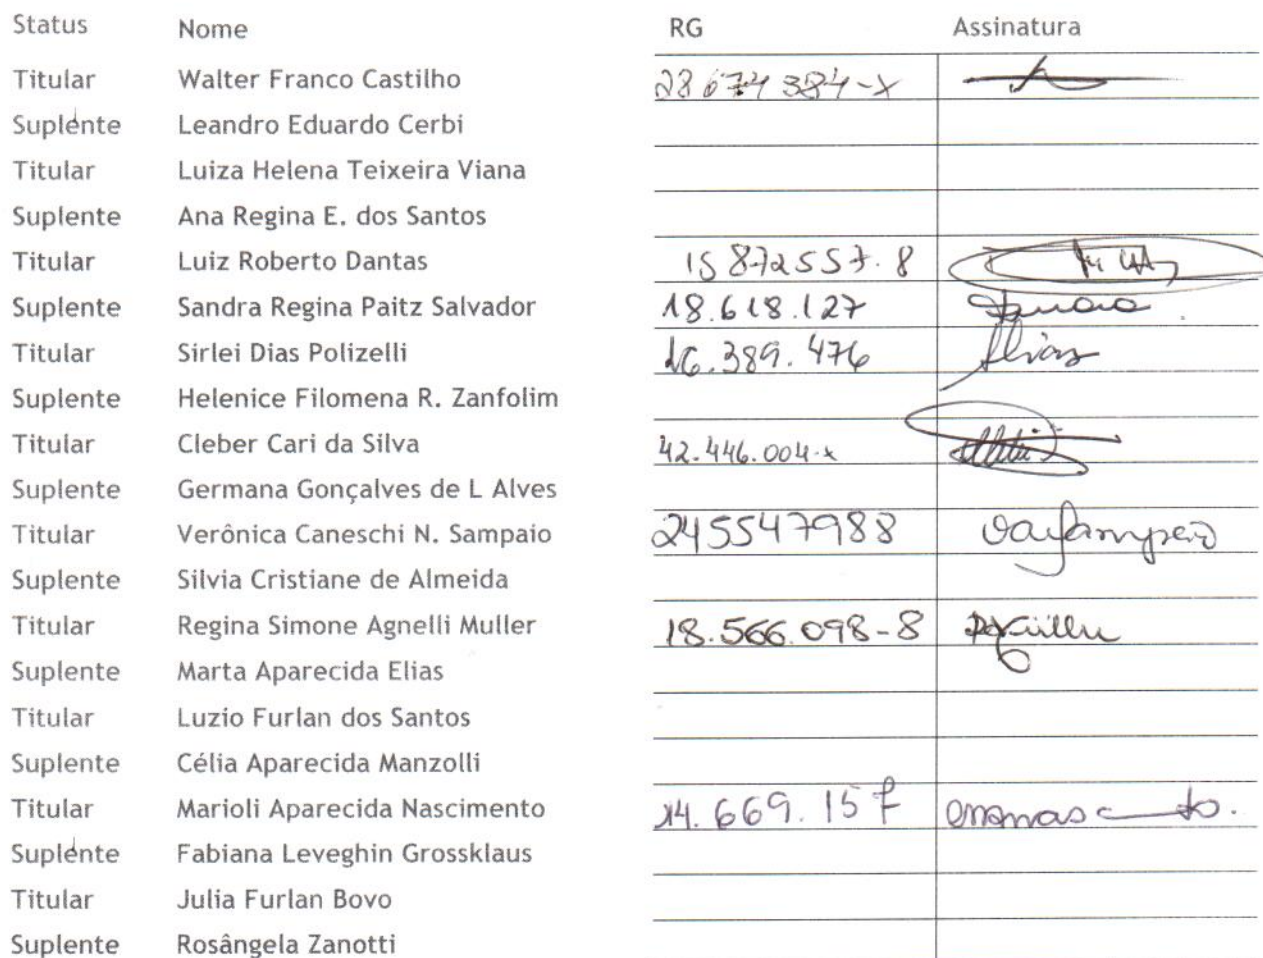 Status Nome RG Assinatura
Titular Walter Franco Castilho 28 674 384-X
Suplente Leandro Eduardo Cerbi
Titular Luiza Helena Teixeira Viana
Suplente Ana Regina E. dos Santos
Titular Luiz Roberto Dantas 15 872557.8
Suplente Sandra Regina Paitz Salvador 18.618.127
Titular Sirlei Dias Polizelli 16.389.476
Suplente Helenice Filomena R. Zanfolim
Titular Cleber Cari da Silva 42.446.004-x
Suplente Germana Gonçalves de L Alves
Titular Verônica Caneschi N. Sampaio 245547988
Suplente Silvia Cristiane de Almeida
Titular Regina Simone Agnelli Muller 18.566.098-8
Suplente Marta Aparecida Elias
Titular Luzio Furlan dos Santos
Suplente Célia Aparecida Manzolli
Titular Marioli Aparecida Nascimento 14.669.157
Suplente Fabiana Leveghin Grossklaus
Titular Julia Furlan Bovo
Suplente Rosângela Zanotti